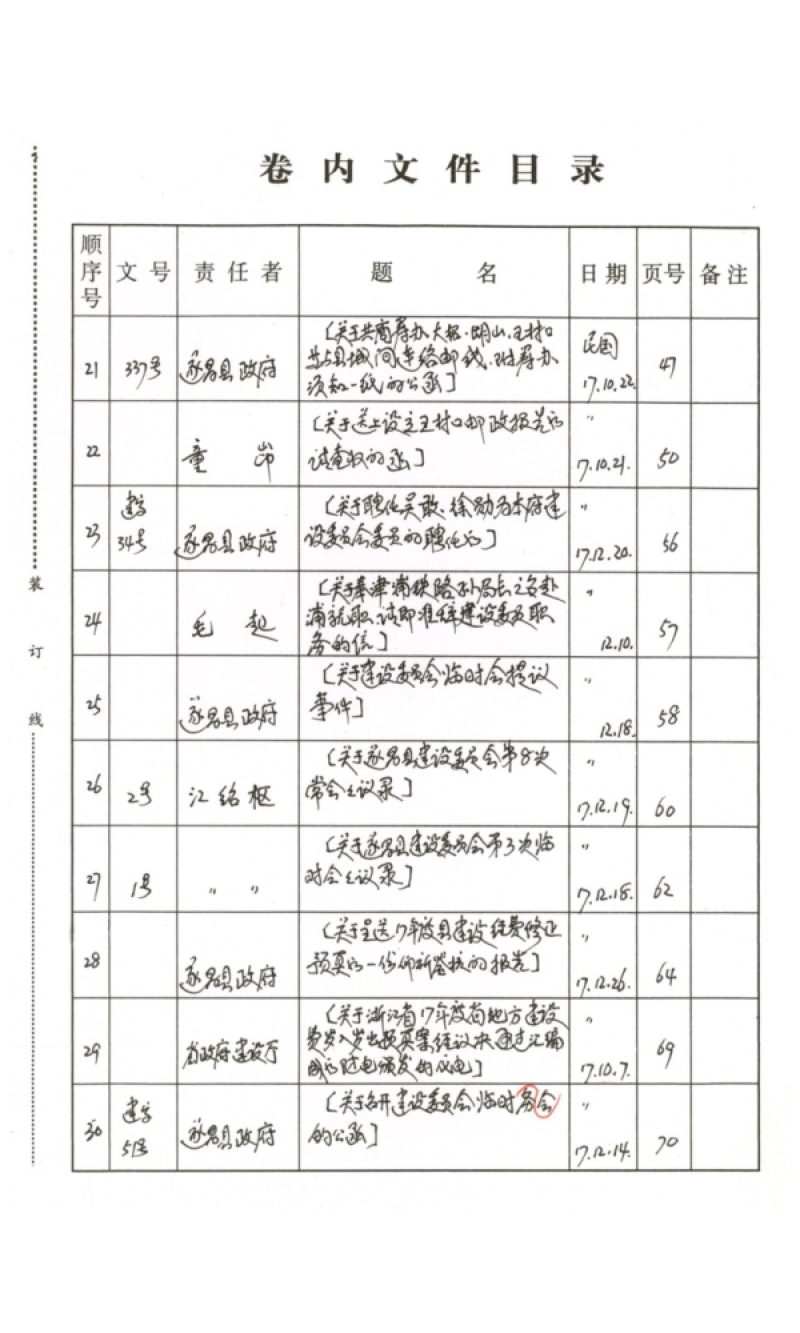 卷内文件目录
顺序号 文号 责任者 题名 日期 页号 备注
21 337号 遂昌县政府 [关于共商筹办大柘、湖山、王村口
并与县城间连络邮线、附筹办
须知一纸的公函] 民国
17.10.22. 47
22 童 [关于送上设立王村口邮政报告的
请查收的函] 〃
17.10.21. 50
23 建字
34号 遂昌县政府 [关于聘任吴敢、徐勋为本府建
设委员会委员的聘任] 〃
17.12.20. 56
24 毛起 [关于奉津浦铁路孙局长之名赴
浦就职、请即准辞建设委员职
务的信] 〃
12.10. 57
25 遂昌县政府 [关于建设委员会临时会提议
事件] 〃
12.18. 58
26 2号 江绍枢 [关于遂昌县建设委员会第8次
常会会议录] 〃
17.12.19. 60
27 1号 〃 〃 [关于遂昌县建设委员会第3次临
时会会议录] 〃
17.12.18. 62
28 遂昌县政府 [关于呈送17年度县建设经费修正
预算的一份仰祈鉴核的报告] 〃
17.12.26. 64
29 省政府建设厅 [关于浙江省17年度省地方建设
费岁入岁出预算案经议决通过汇编
颁发的代电] 〃
17.10.7. 69
30 建字
51号 遂昌县政府 [关于召开建设委员会临时务会
的公函] 〃
17.12.14. 70
装
订
线